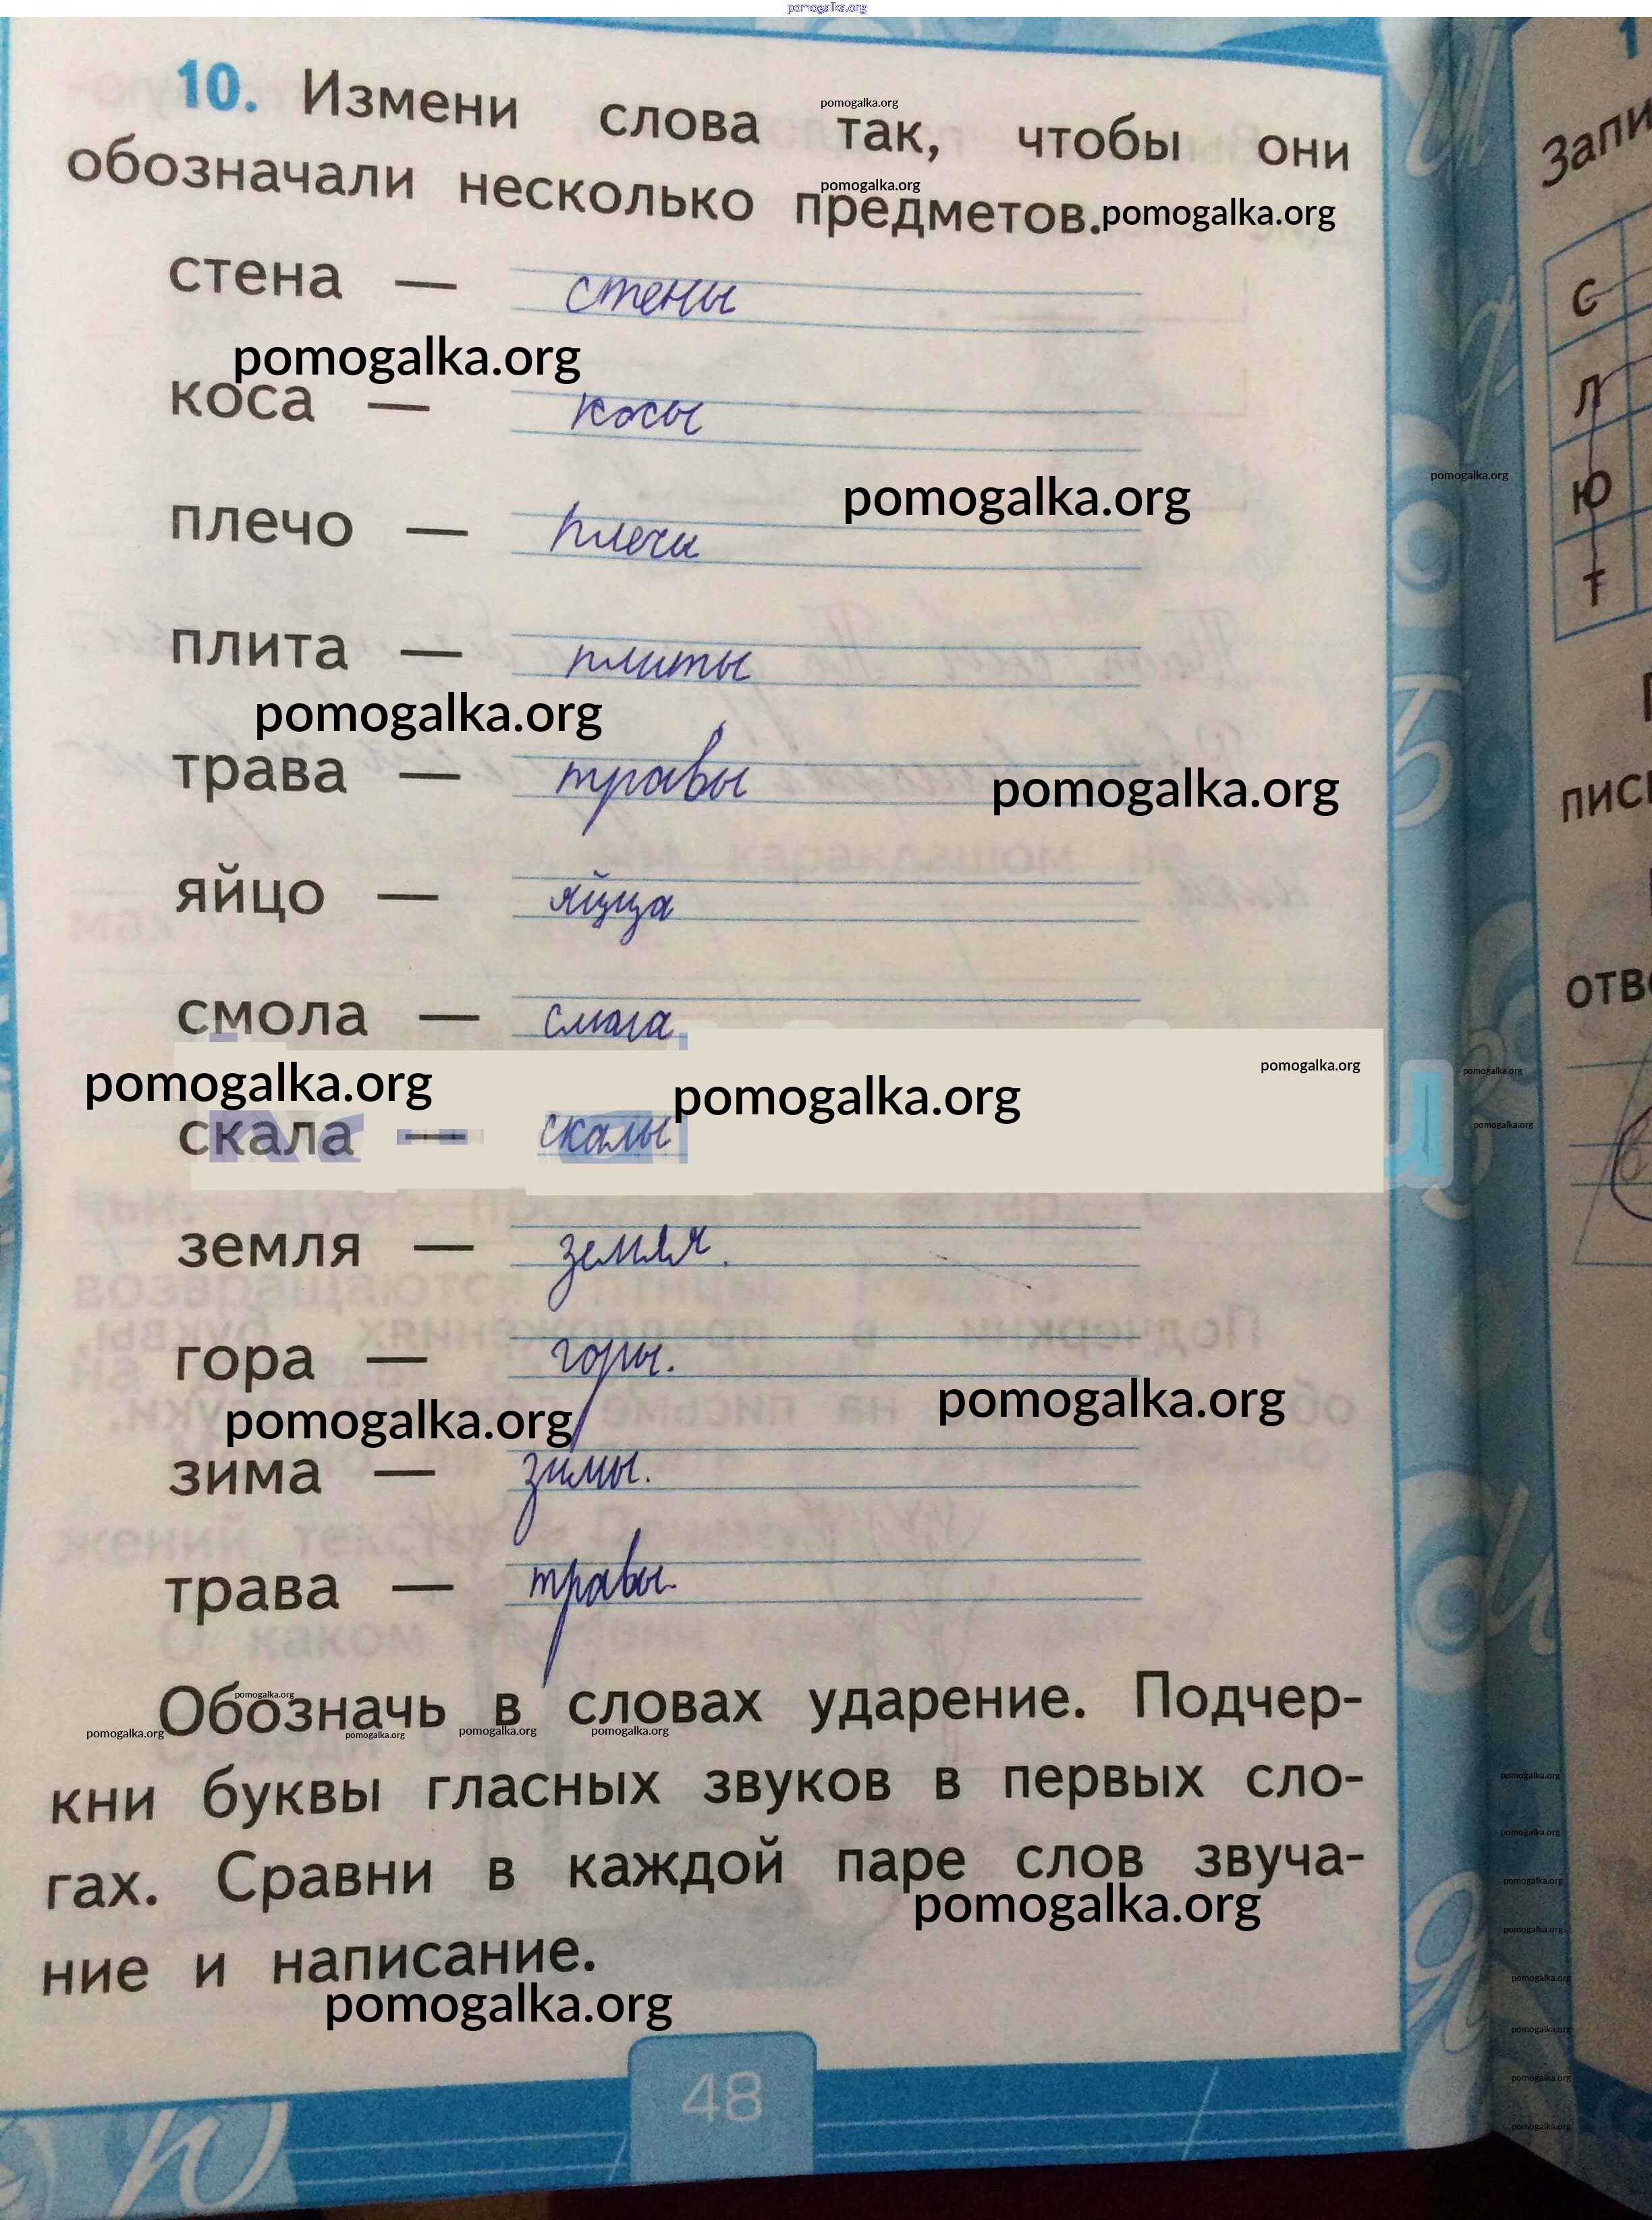 pomogalka.org
10. Измени слова так, чтобы они
pomogalka.org
обозначали несколько предметов.
pomogalka.org
pomogalka.org
стена — стены
pomogalka.org
коса — косы
pomogalka.org
плечо — плечи
плита — плиты
pomogalka.org
трава — травы
pomogalka.org
яйцо — яйца
смола — смола
pomogalka.org
pomogalka.org
pomogalka.org
скала — скалы
земля — земля.
гора — горы.
pomogalka.org
pomogalka.org
зима — зимы.
трава — травы.
Обозначь в словах ударение. Подчер-
pomogalka.org
pomogalka.org
pomogalka.org
pomogalka.org
pomogalka.org
кни буквы гласных звуков в первых сло-
гах. Сравни в каждой паре слов звуча-
pomogalka.org
ние и написание.
pomogalka.org
48
Запи
с
л
ю
т
pomogalka.org
пис
отв
pomogalka.org
pomogalka.org
pomogalka.org
pomogalka.org
pomogalka.org
pomogalka.org
pomogalka.org
pomogalka.org
pomogalka.org
pomogalka.org